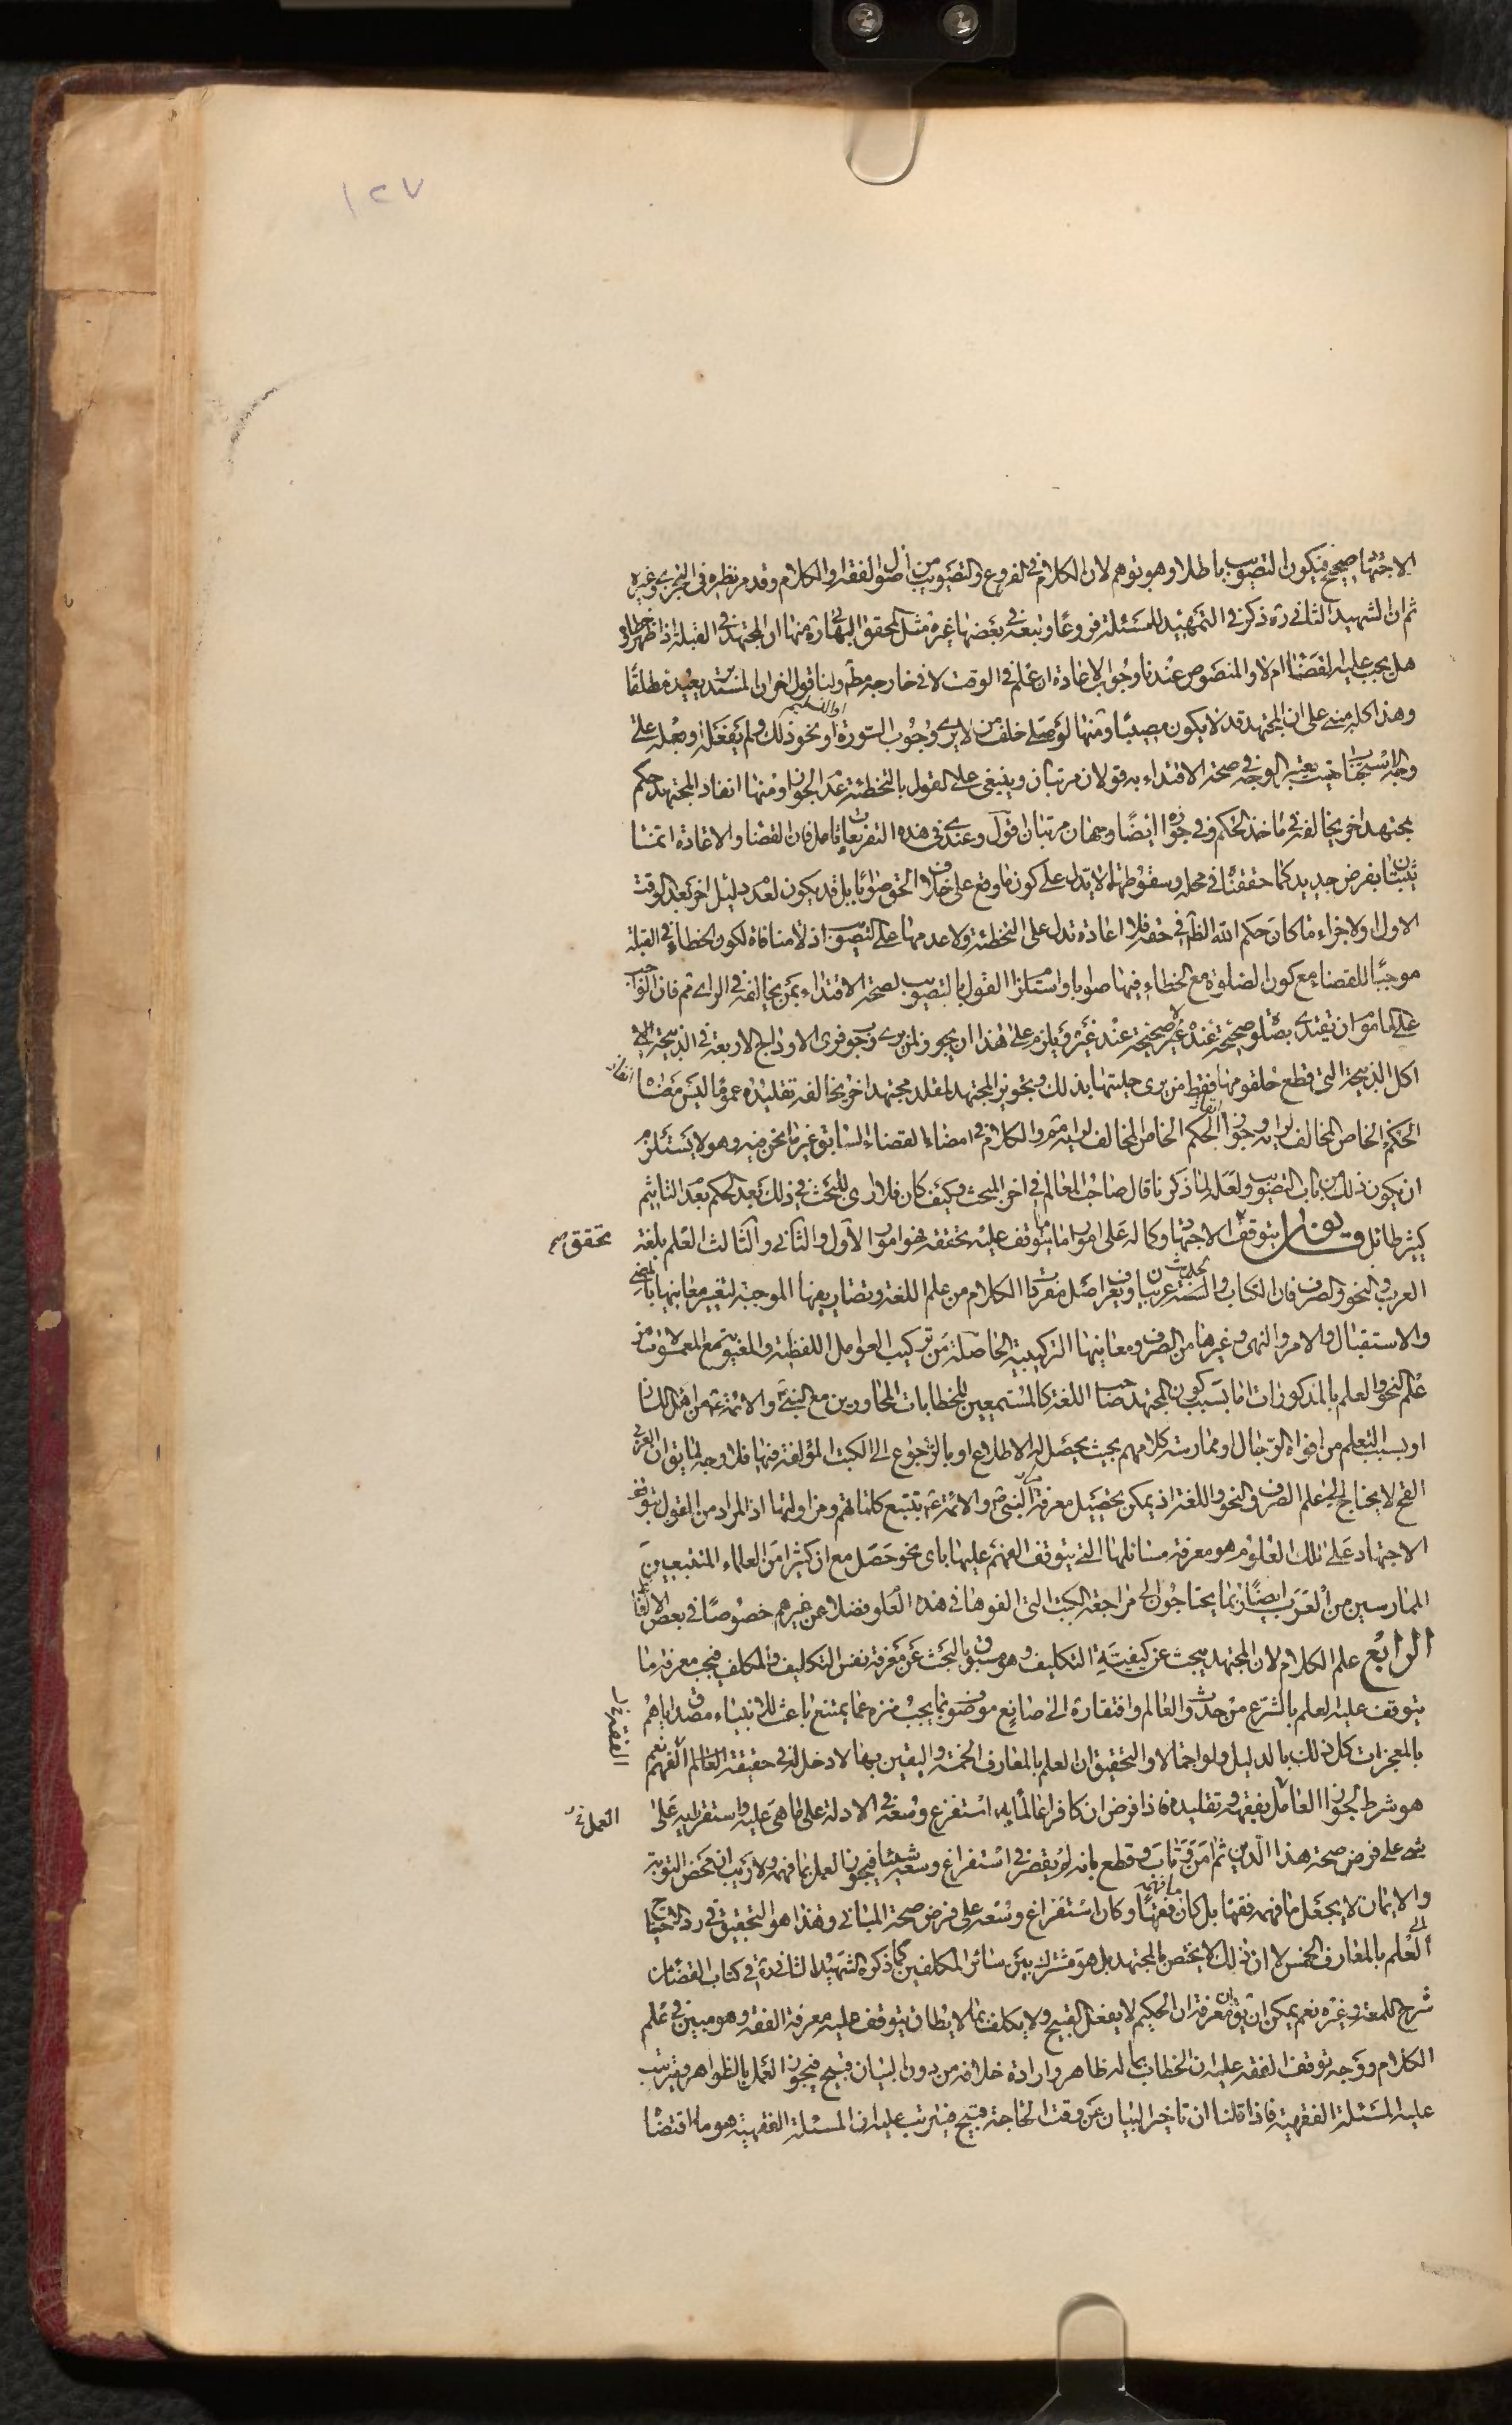 ١٢٧
الاجتهاد صحيح فيكون التصويب باطلا وهو توهم لان الكلام في الفروع والتصويب من اصول الفقه والكلام وقد مر نظيره في التجزي وغيره
ثم ان الشهيد الثاني ره ذكر في التمهيد للمسئلة فروعا وتبعه في بعضها غيره مثل المحقق البهائي ره منها ان المجتهد في القبلة اذا ظهر خطاؤه
هل يجب عليه القضاء ام لا والمنصوص عندنا وجوب الاعادة ان علم في الوقت لا في خارجه مطلقا ولنا قول اخر ان المستدبر يعيد مطلقا
وهذا كله مبني على ان المجتهد قد لا يكون مصيبا ومنها لو صلى خلف من لا يرى وجوب السورة او التسليم او نحو ذلك ولم يفعله وفعله على
وجه الاستحباب حيث يعتبر الوجه في صحة الاقتداء به قولان مرتبان وينبغي على القول بالتخطئة عدم الجواز ومنها انفاذ المجتهد حكم
مجتهد اخر يخالفه في ماخذ الحكم وفي جوازه ايضا وجهان مرتبان اقول وعندي في هذه التفريعات تامل فان القضاء والاعادة انما
يثبتان بفرض جديد كما حققنا في محله وسقوطهما لا يدل على كون ما وقع على خلاف الحق صوابا بل قد يكون لعدم دليل اخر بعد الوقت
الاول او لاجزاء ما كان حكم الله الظاهري في حقه فلا اعادة تدل على التخطئة ولا عدمها على التصويب اذ لا منافاة لكون الخطاء في القبلة
موجبا للقضاء مع كون الصلوة مع الخطاء فيها صوابا واستلزام القول بالتصويب لصحة الاقتداء بمن يخالفه في الراي ثم فان الواجب
على الماموم ان يقتدي بصلوة صحيحة عنده لا صحيحة عند غيره ويلزم على هذا ان يجوز لمن يرى وجوب فرى الاوداج الاربعة في الذبيحة
اكل الذبيحة التي قطع حلقومها فقط من يرى حليتها بذلك وتجويز المجتهد لمقلد مجتهد اخر يخالفه تقليده عموما ليس امضاء
الحكم الخاص المخالف لرايه وجواز انفاذ الحكم الخاص المخالف لرايه ثم والكلام في امضاء القضاء السابق غير ما نحن فيه وهو لا يستلزم
ان يكون ذلك من باب التصويب ولعله لما ذكرنا قال صاحب المعالم في اخر المبحث وكيف كان فلا ارى للبحث في ذلك بعد الحكم بعدم التاثيم
كثير طائل قانون يتوقف الاجتهاد وكماله على امور اما ما يتوقف عليه تحققه فهو امور الاول والثاني والثالث العلم بلغة
تحقق صح
العرب والنحو والصرف فان الكتاب والسنة عربيان ويعرف اصل مفردات الكلام من علم اللغة وتصاريفها الموجبة لتغيير معانيها بالمضي
والاستقبال والامر والنهي وغيرها من الصرف ومعانيها التركيبية الحاصلة من تركيب العوامل اللفظية والمعنوية مع المعمولات من
علم النحو والعلم بالمذكورات اما بسبب كون المجتهد صاحب اللغة كالمستمعين للخطابات المحاورين مع النبي والائمة من اهل اللسان
او بسبب التعلم من افواه الرجال او ممارسته كلامهم بحيث يحصل له الاطلاع او بالرجوع الى الكتب المؤلفة فيها فلا وجه لما يق ان العربي
القح لا يحتاج الى علم الصرف والنحو واللغة اذ يمكن تحصيل معرفة كلام النبي والائمة بتتبع كلماتهم ومزاولتها اذ المراد من القول بتوقف
الاجتهاد على تلك العلوم هو معرفة مسائلها التي يتوقف الفهم عليها باي نحو حصل مع ان كثيرا من العلماء المتتبعين
الممارسين من العرب ايضا ربما يحتاجون الى مراجعة الكتب التي الفوها في هذه العلوم فضلا عن غيرهم خصوصا في بعض الالفاظ
الرابع علم الكلام لان المجتهد يبحث عن كيفية التكليف وهو مسبوق بالبحث عن معرفة نفس التكليف والمكلف فيجب معرفة ما
يتوقف عليه العلم بالشرع من حدوث العالم وافتقاره الى صانع موصوف بما يجب منزه عما يمتنع باعث للانبياء مصدق اياهم
بالمعجزات كل ذلك بالدليل ولو اجمالا والتحقيق ان العلم بالمعارف الخمسة واليقين بها لا دخل له في حقيقة الفقه نعم
هو شرط لجواز العمل بفقهه وتقليده فاذا فرض ان كافرا عالما استفرغ وسعه في الادلة على ما هي عليه واستقر رايه على
شيء على فرض صحة هذا الدين ثم امن وتاب وقطع بانه لم يقصر في استفراغ وسعه شيئا فيجوز العمل بما فهمه ولا ريب ان محض التوبة
والايمان لا يجعل ما فهمه فقها بل كان ما فهمه فقها وكان استفراغ وسعه على فرض صحة المباني وهذا هو التحقيق في رد الاحتياج
الى العلم بالمعارف الخمس لا ان ذلك لا يختص بالمجتهد بل هو مشترك بين سائر المكلفين كما ذكره الشهيد الثاني ره في كتاب القضاء من
شرح اللمعة وغيره نعم يمكن ان يق ان معرفة ان الحكيم لا يفعل القبيح ولا يكلف بما لا يطاق يتوقف عليه معرفة الفقه وهو مبين في علم
الكلام ووجه توقف الفقه عليه ان الخطاب بما له ظاهر وارادة خلافه من دون البيان قبيح فيجوز العمل بالظواهر ويترتب
عليه المسئلة الفقهية فاذا قلنا ان تاخير البيان عن وقت الحاجة قبيح فيترتب عليه ان المسئلة الفقهية هو ما اقتضاه